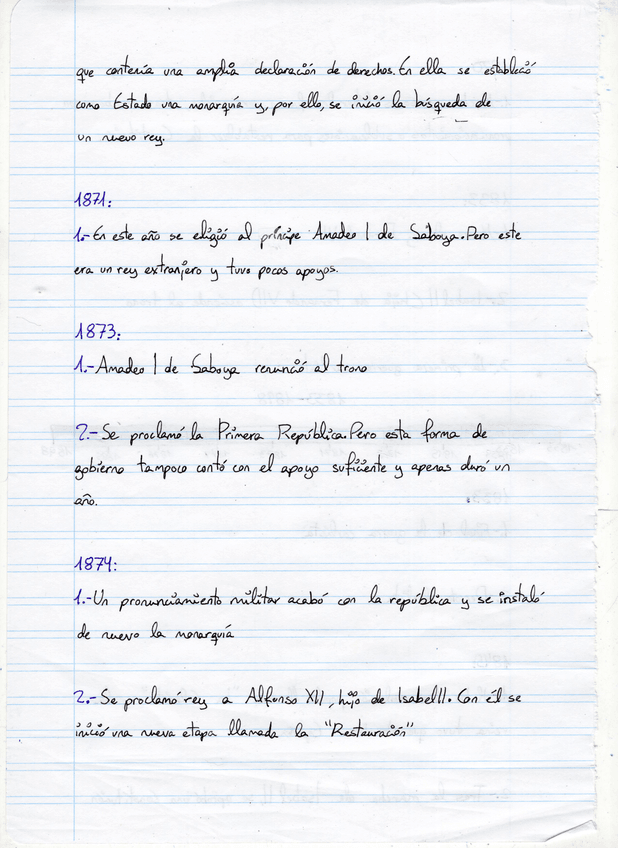 que contenía una amplia declaración de derechos. En ella se estableció
como Estado una monarquía y, por ello, se inició la búsqueda de
un nuevo rey.
1871:
1.-En este año se eligió al príncipe Amadeo I de Saboya. Pero este
era un rey extranjero y tuvo pocos apoyos.
1873:
1.-Amadeo I de Saboya renunció al trono
2.-Se proclamó la Primera República. Pero esta forma de
gobierno tampoco contó con el apoyo suficiente y apenas duró un
año.
1874:
1.-Un pronunciamiento militar acabó con la república y se instaló
de nuevo la monarquía
2.-Se proclamó rey a Alfonso XII, hijo de Isabel II. Con él se
inició una nueva etapa llamada la "Restauración"